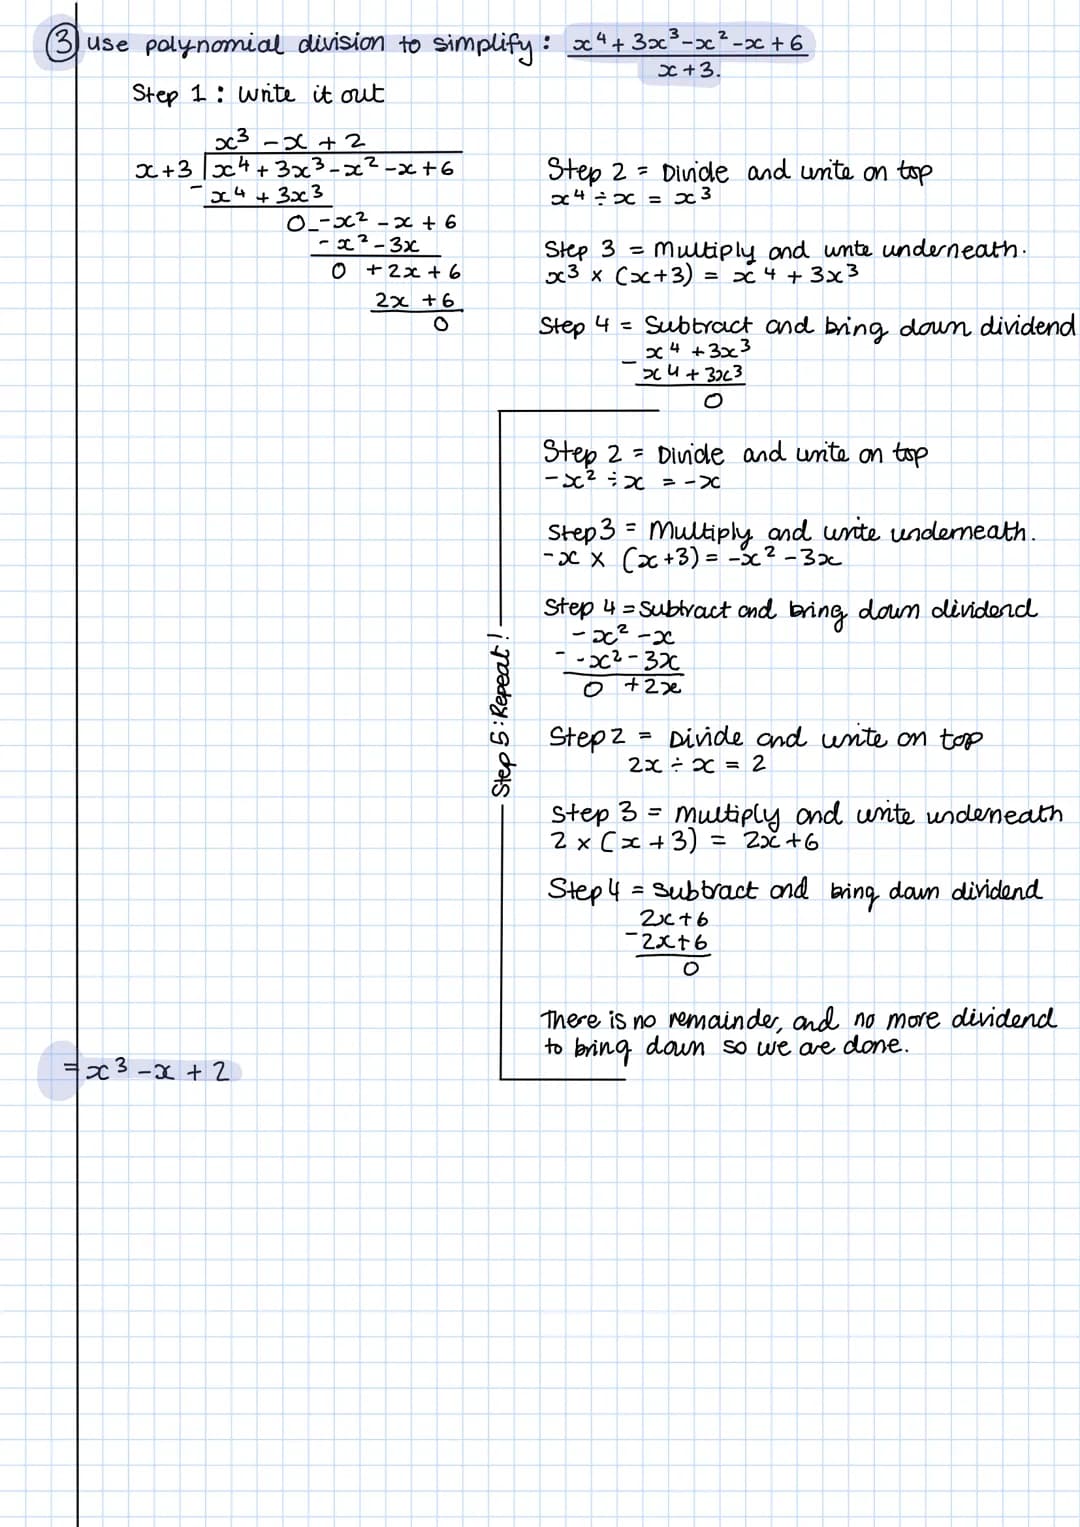 ③ use polynomial division to simplify: x⁴ + 3x³ - x² - x + 6
x + 3.
Step 1: write it out
x³ - x + 2
x + 3 | x⁴ + 3x³ - x² - x + 6
- x⁴ + 3x³
0 - x² - x + 6
- x² - 3x
0 + 2x + 6
2x + 6
0
Step 2 = Divide and write on top
x⁴ ÷ x = x³
Step 3 = Multiply and write underneath.
x³ × (x+3) = x⁴ + 3x³
Step 4 = Subtract and bring down dividend
x⁴ + 3x³
- x⁴ + 3x³
0
Step 5: Repeat!
Step 2 = Divide and write on top
-x² ÷ x = -x
Step 3 = Multiply and write underneath.
-x × (x+3) = -x² - 3x
Step 4 = Subtract and bring down dividend
- x² - x
- -x² - 3x
0 + 2x
Step 2 = Divide and write on top
2x ÷ x = 2
Step 3 = multiply and write underneath
2 × (x + 3) = 2x + 6
Step 4 = Subtract and bring down dividend
2x + 6
- 2x + 6
0
There is no remainder, and no more dividend
to bring down so we are done.
= x³ - x + 2